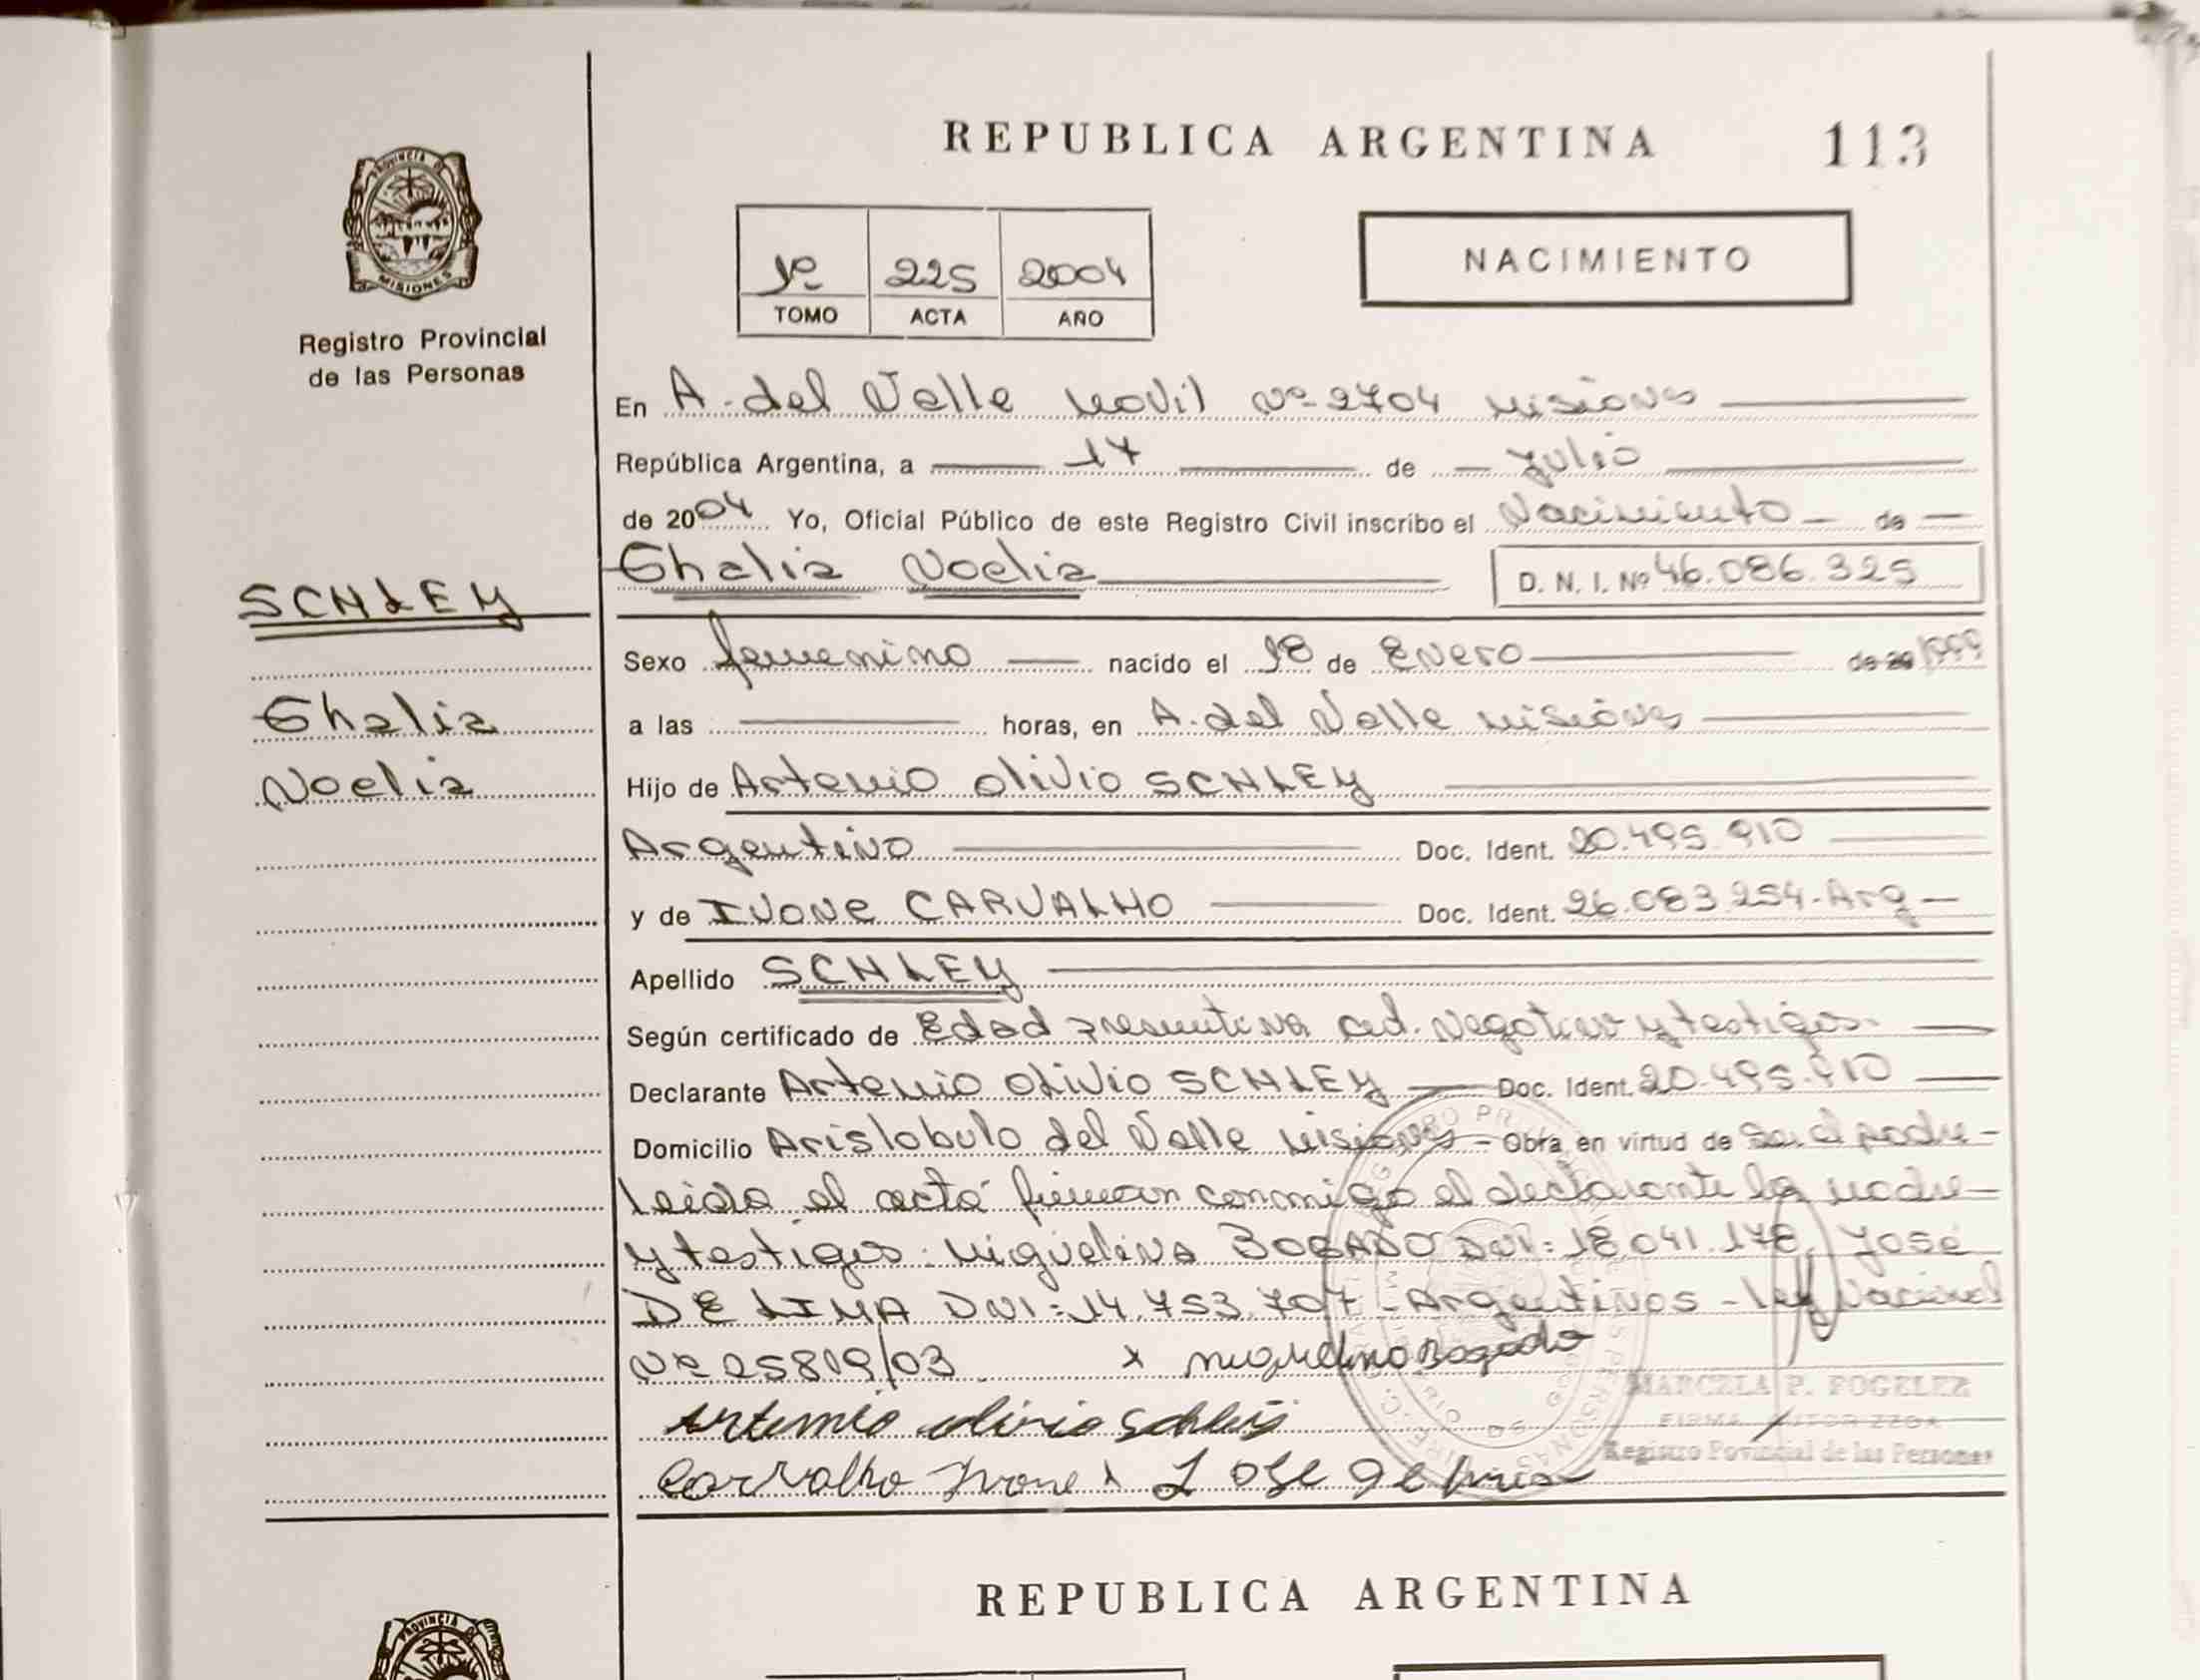 REPUBLICA ARGENTINA 113
PROVINCIA DE
MISIONES
Registro Provincial
de las Personas
1º 225 2004
TOMO ACTA AÑO
NACIMIENTO
En A. del Valle Movil Nº 2704 Misiones
República Argentina, a 17 de Julio
de 2004 Yo, Oficial Público de este Registro Civil inscribo el Nacimiento de
Ghalia Noelia D. N. I. Nº 46.086.325
SCHLEY
Sexo femenino nacido el 18 de Enero de 20 1999
Ghalia
a las horas, en A. del Valle Misiones
Noelia
Hijo de Artemio Olivio SCHLEY
Argentino Doc. Ident. 20.495.910
y de IVONE CARVALHO Doc. Ident. 26.083.254-Arg
Apellido SCHLEY
Según certificado de Edad presuntiva cert. Negativo y testigos.
Declarante Artemio Olivio SCHLEY Doc. Ident. 20.495.910
Domicilio Aristobulo del Valle Misiones - Obra en virtud de Ser el padre -
Leida el acta firman conmigo el declarante la madre
y testigos: Miguelina BOGADO DNI: 18.041.178, José
DE LIMA DNI: 14.753.707 - Argentinos - Ley Nacional
Nº 25819/03 x Miguelina Bogado
MARCELA P. FOGELER
Artemio olivio Schley
Registro Povincial de las Personas
Carvalho Ivone x Jose de lima
REPUBLICA ARGENTINA
PROVINCIA